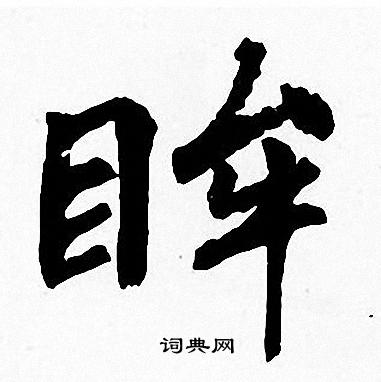 眸
词典网